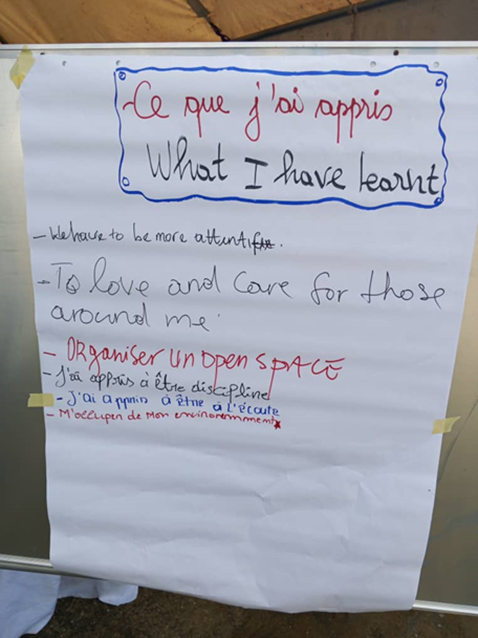 -Ce que j'ai appris
What I have learnt
- We have to be more attentif.
- To love and care for those
around me.
- ORganiser un open SPACE
- J'ai appris à être discipline
- J'ai appris à être à l'écoute
- M'occuper de mon environnement